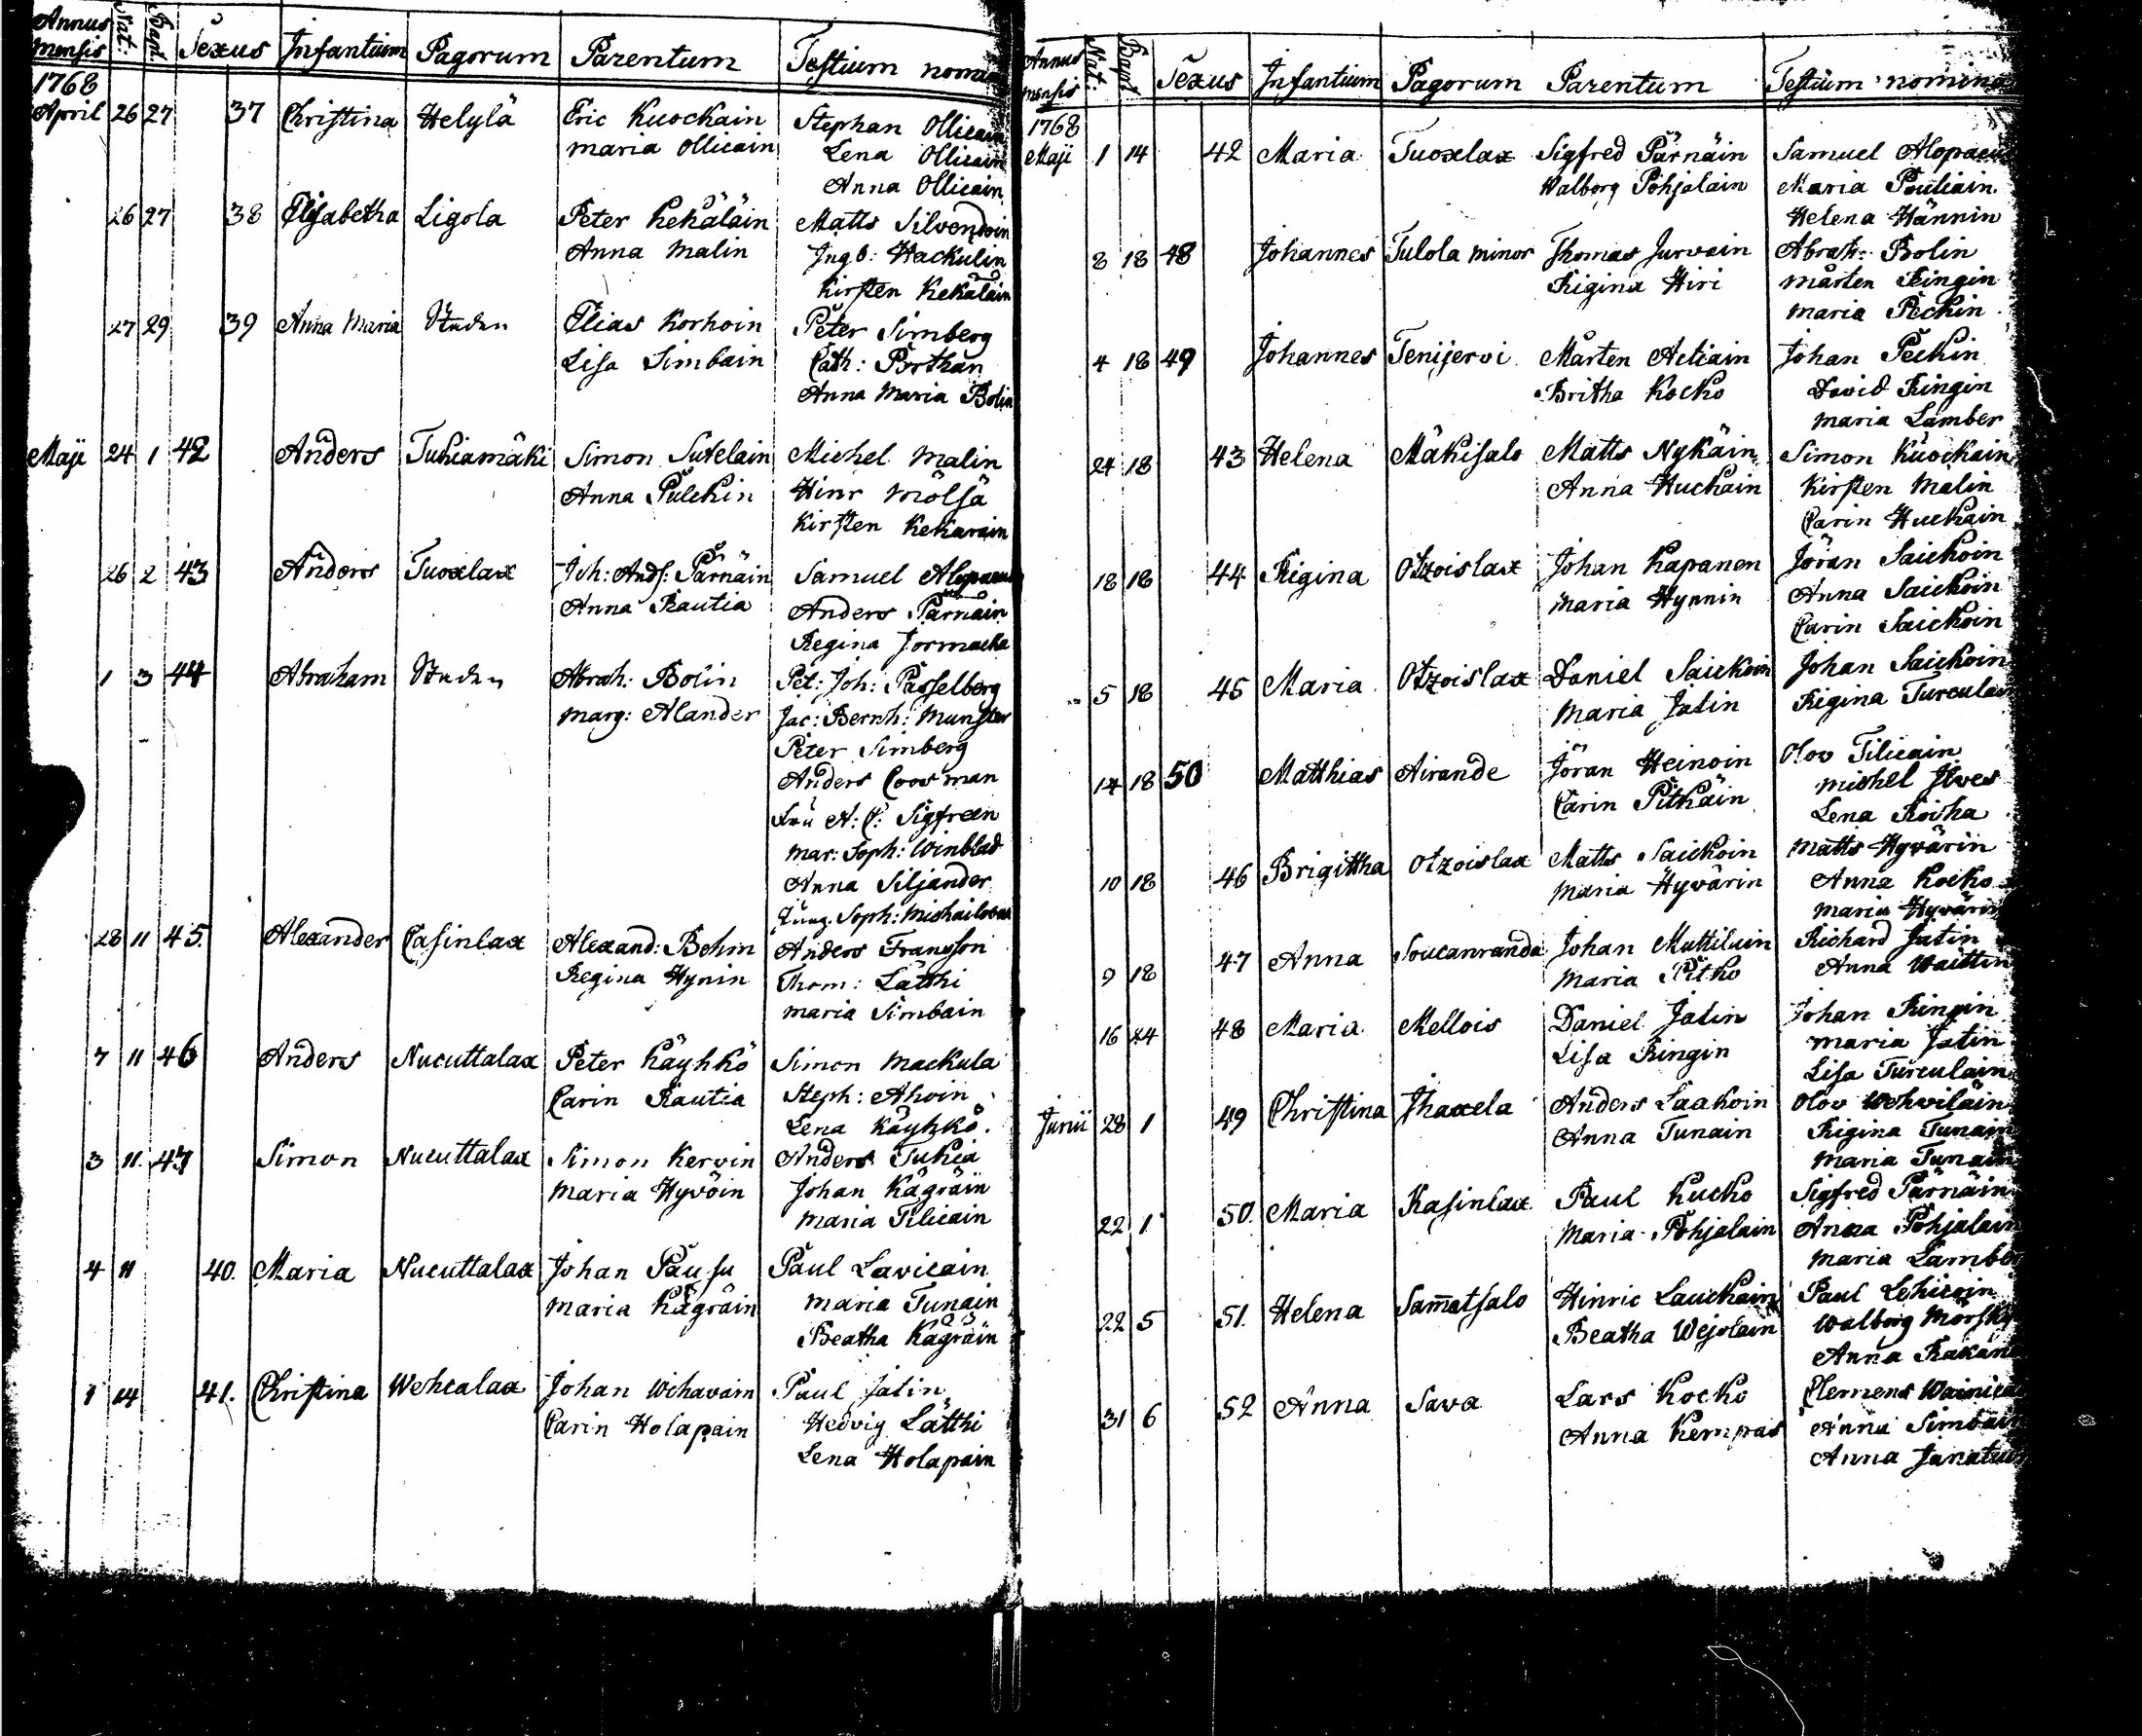 Annus mensis Nat: Bapt Sexus Infantium Pagorum Parentum Testium nomi
1768
April 26 27 37 Christina Helylä Eric Kuockain Stephan Ollicain
Maria Ollicain Lena Ollicain
Anna Ollicain
26 27 38 Elisabetha Ligola Peter Kekäläin Matts Silvendoin
Anna Malin Ingb: Hackulin
Kirsten Kekäläin
27 29 39 Anna Maria Staden Elias Korhoin Peter Simberg
Lisa Simbain Cath: Porthan
Anna Maria Bolin
Maji 24 1 42 Anders Tuhiamäki Simon Sutelain Michel Malin
Anna Pulckin Hinr Mölsä
Kirsten Kekarain
26 2 43 Anders Tuoxlax Joh: Ands: Pärnäin Samuel Alopaeus
Anna Rautia Anders Pärnäin
Regina Jormacka
1 3 44 Abraham Staden Abrah: Bolin Pet: Joh: Passelberg
Marg: Alander Jac: Bernh: Munster
Peter Simberg
Anders Coosman
Fru A: C: Sigfreen
Mar: Soph: Winblad
Anna Siljander
Jung. Soph: Michailovna
28 11 45 Alexander Casinlax Alexand: Behm Anders Fransson
Regina Hynin Thom: Lätthi
Maria Simbain
7 11 46 Anders Nucuttalax Peter Käyhkö Simon Mackula
Carin Rautia Steph: Ahoin
Lena Käyhkö.
3 11. 47 Simon Nucuttalax Simon Kervin Anders Tukia
Maria Hyvöin Johan Kägräin
Maria Tilicain
4 11 40. Maria Nucuttalax Johan Pausu Paul Lavicain
Maria Kägräin Maria Tunain
Beatha Kägräin
1 14 41. Christina Wehcalax Johan Wihavain Paul Jatin
Carin Holapain Hedvig Lätthi
Lena Holapain
Annus mensis Nat: Bapt Sexus Infantium Pagorum Parentum Testium nomina
1768
Maji 1 14 42 Maria Tuoxlax Sigfred Pärnäin Samuel Alopaeus
Walborg Pohjalain Maria Pouliain
Helena Hännin
8 18 48 Johannes Tulola minor Thomas Jurvain Abrah: Bolin
Rigina Hiri Mårten Ringin
Maria Peckin
4 18 49 Johannes Tenijervi Mårten Acticain Johan Peckin
Britha Kocko David Ringin
Maria Lamber
24 18 43 Helena Mäkisalo Matts Nykäin Simon Kuockain
Anna Huckain Kirsten Malin
Carin Huckain
18 18 44 Rigina Otzoislax Johan Kapanen Jöran Saickoin
Maria Hynnin Anna Saickoin
Carin Saickoin
5 18 45 Maria Otzoislax Daniel Saickoin Johan Saickoin
Maria Jatin Rigina Turculain
14 18 50 Matthias Airande Jöran Heinoin Olov Tilicain
Carin Pitkäin Michel Ilves
Lena Roiha
10 18 46 Brigittha Otzoislax Matts Saickoin Matts Hyvärin
Maria Hyvärin Anna Kocko
Maria Hyvärin
9 18 47 Anna Soucanranda Johan Muttilain Richard Jatin
Maria Pitko Anna Waittin
16 24 48 Maria Mellois Daniel Jatin Johan Ringin
Lisa Ringin Maria Jatin
Lisa Turculain
Junii 28 1 49 Christina Ihaxela Anders Laakoin Olov Wehviläin
Anna Tunain Rigina Tunain
Maria Tunain
22 1 50. Maria Kasinlax Paul Kucko Sigfred Pärnäin
Maria Pohjalain Anna Pohjalain
Maria Lamber
22 5 51. Helena Samatsalo Hinric Lauckain Paul Lehicoin
Beatha Wejolain Walborg Mörsky
Anna Rakan
31 6 52 Anna Sava Lars Kocko Clemens Wainica
Anna Kempas Anna Simbain
Anna Janatuin